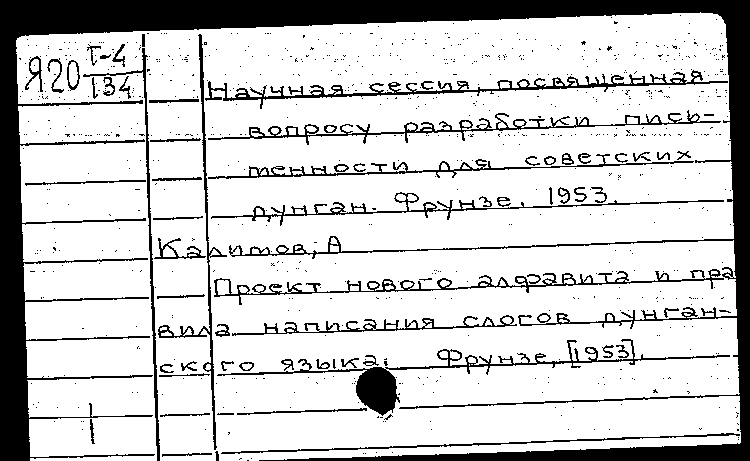 Я20 Т-4
134
Научная сессия, посвященная
вопросу разработки пись-
менности для советских
дунган. Фрунзе. 1953.
Калимов, А
Проект нового алфавита и пра
вила написания слогов дунган-
ского языка. Фрунзе, [1953].